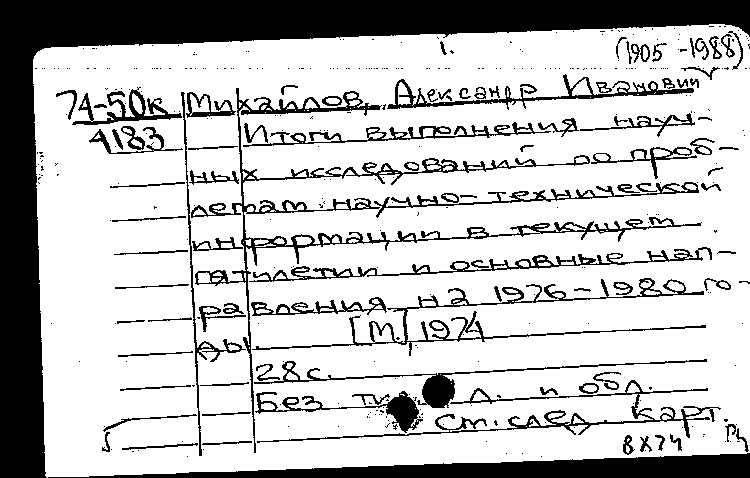 1.
(1905-1988)
74-50к Михайлов, Александр Иванович
4183 Итоги выполнения науч-
ных исследований по проб-
летам научно-технической
информации в текущем
пятилетии и основные нап-
равления на 1976-1980 го-
ды. [М.], 1974
28с.
Без л. и обл.
См. след. карт.
8X74